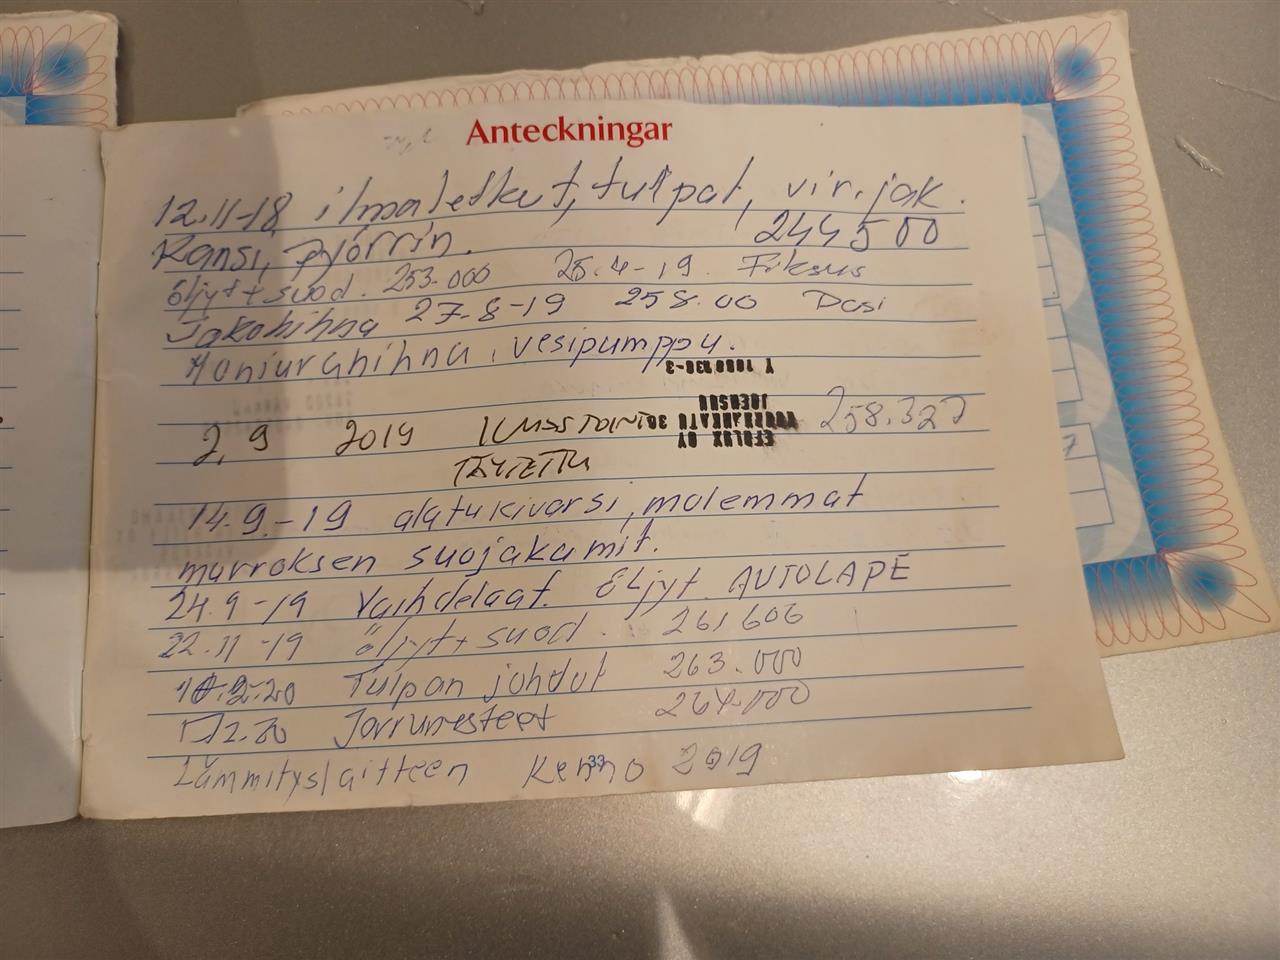 Anteckningar
12.11-18 ilmaletkut, tulpat, vir.jak.
Kansi, pyörrin. 244500
öljyt+suod. 253.000 25.4-19. Fiksus
Jakohihna 27-8-19 258.00 Dasi
Moniurahihna, vesipumppu.
2.9 2019 ILMASTOINTI 258.327
TÄYTETTU
14.9.-19 alatukivarsi, molemmat
murroksen suojakumit.
24.9-19 Vaihdelaat. Öljyt. AUTOLAPE
22.11-19 öljyt+suod. 261606
10.2.20 Tulpan johdut 263.000
Jarrunesteet 264.000
Lämmityslaitteen Kenno 2019
33